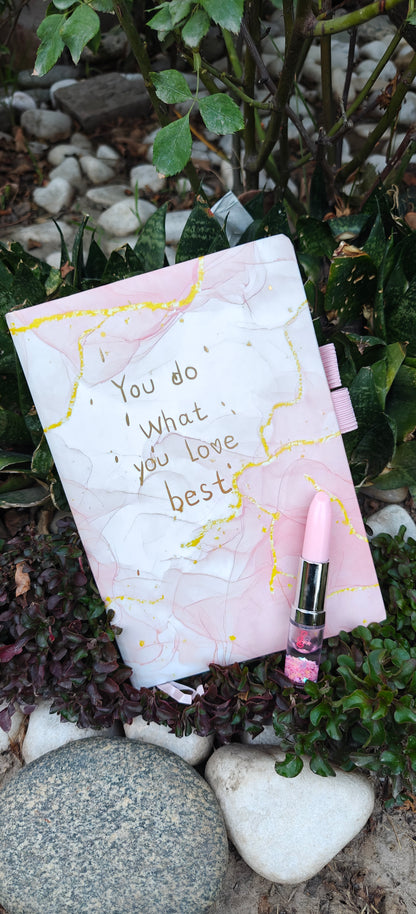 You do
What
you Love
best.